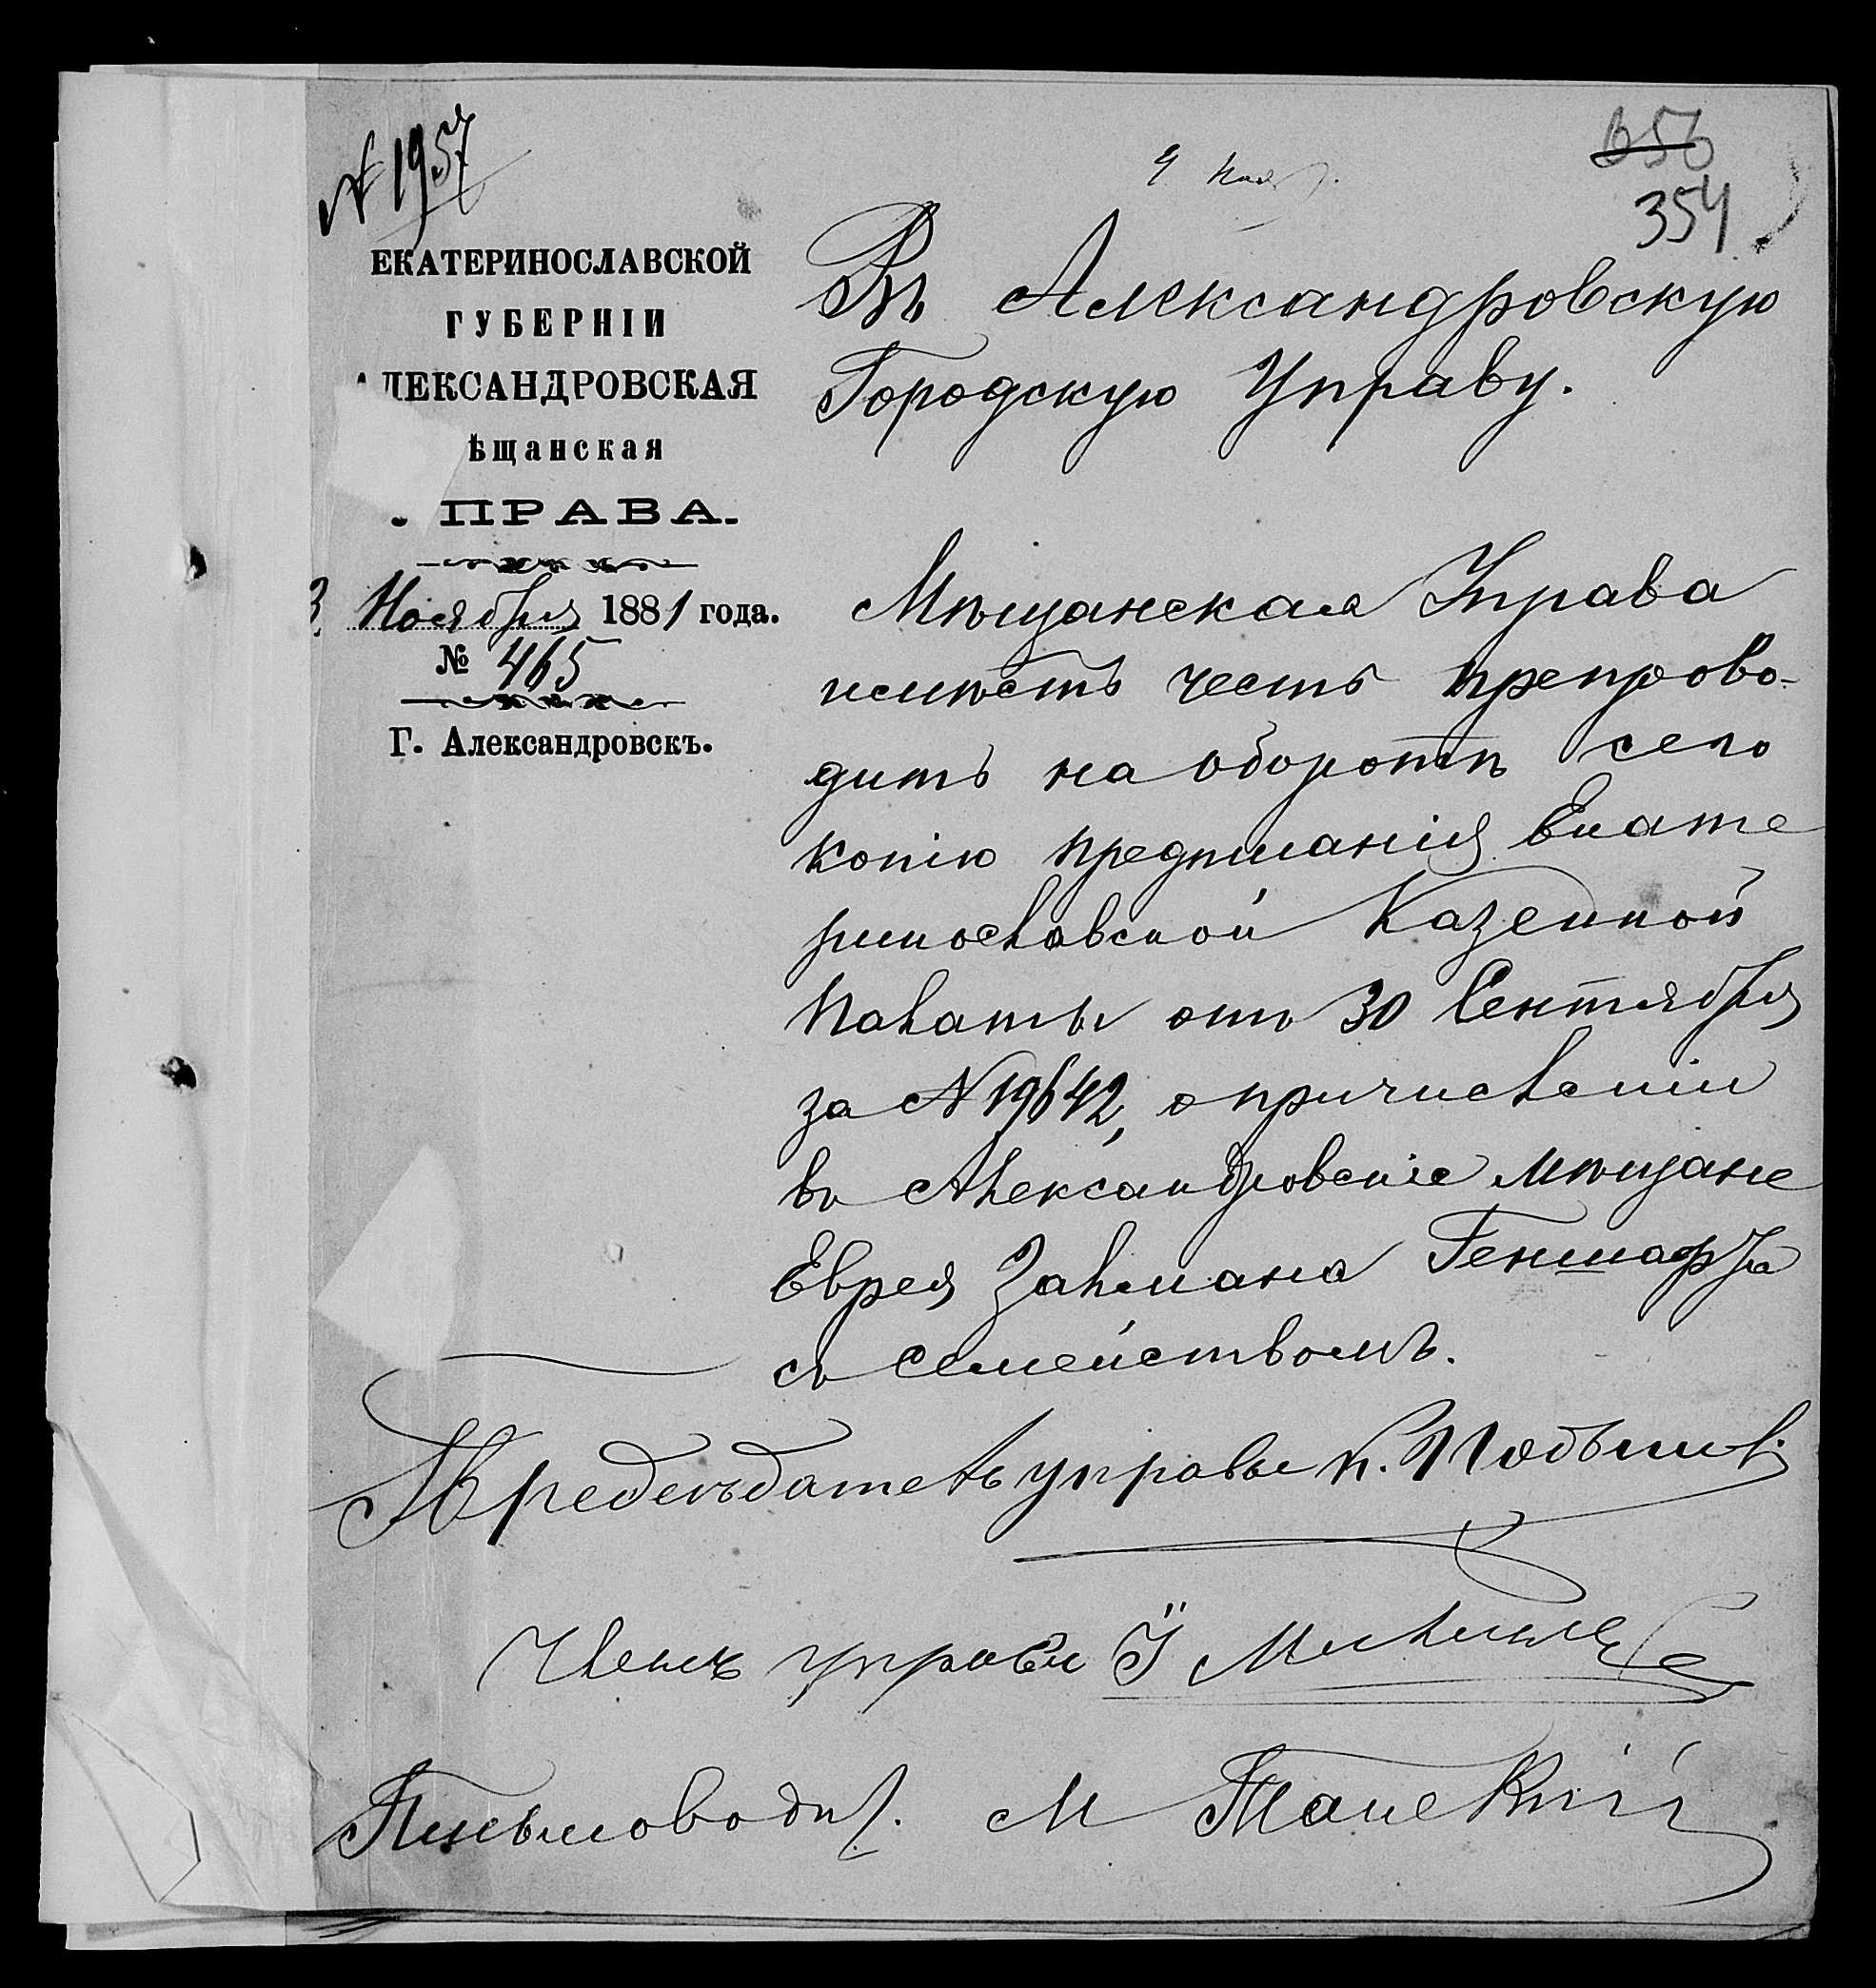 № 1957
4 Нояб.
356
354
ЕКАТЕРИНОСЛАВСКОЙ
ГУБЕРНІИ
ЛЕКСАНДРОВСКАЯ
ѢЩАНСКАЯ
ПРАВА.
3 Ноября 1881 года.
№ 465
Г. Александровскъ.
Въ Александровскую
Городскую Управу.
Мѣщанская Управа
имѣетъ честь препрово-
дить на оборотѣ сего
копію предписанія Екате
ринославской Казенной
Палаты отъ 30 Сентября
за № 19642, о причисленіи
въ Александровскіе мѣщане
Еврея Залмана Геншафта
съ семействомъ.
Предсѣдатель управы К.
Членъ управы І
Письмовод. М